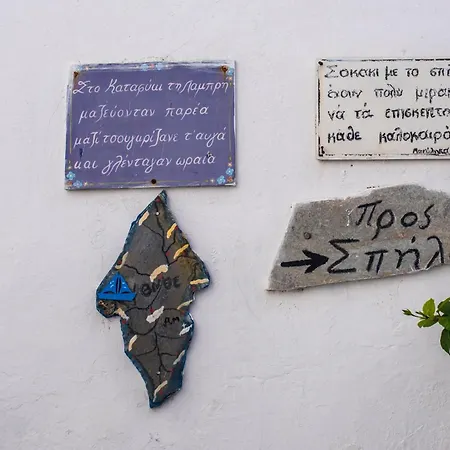 Στο Καταφύγι τη Λαμπρή
μαζεύονταν παρέα
μαζί τσουγρίζανε τ' αυγά
και γλένταγαν ωραία
Σοκάκι με το σπί
έχουν πολύ μερακ
να τα επισκεπτε
κάθε καλοκαίρι
Προς
Σπήλ